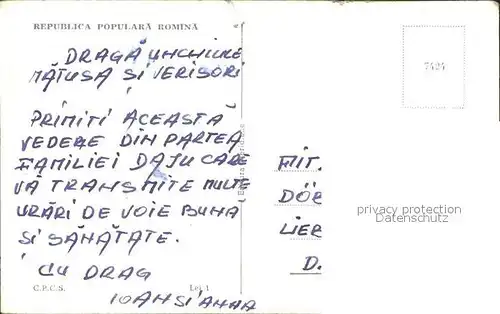 REPUBLICA POPULARĂ ROMÎNĂ
DRAGĂ UNCHIULE
MĂTUSA SI VERISORI
PRIMITI ACEASTĂ
VEDERE DIN PARTEA
FAMILIEI DAJU CARE
VĂ TRANSMITE MULTE
URĂRI DE VOIE BUNA
SI SĂNĂTATE.
CU DRAG
IOAN SI ANAA
C.P.C.S.
Lei 1
7424
DÖR
LIER
D.
privacy protection
Datenschutz